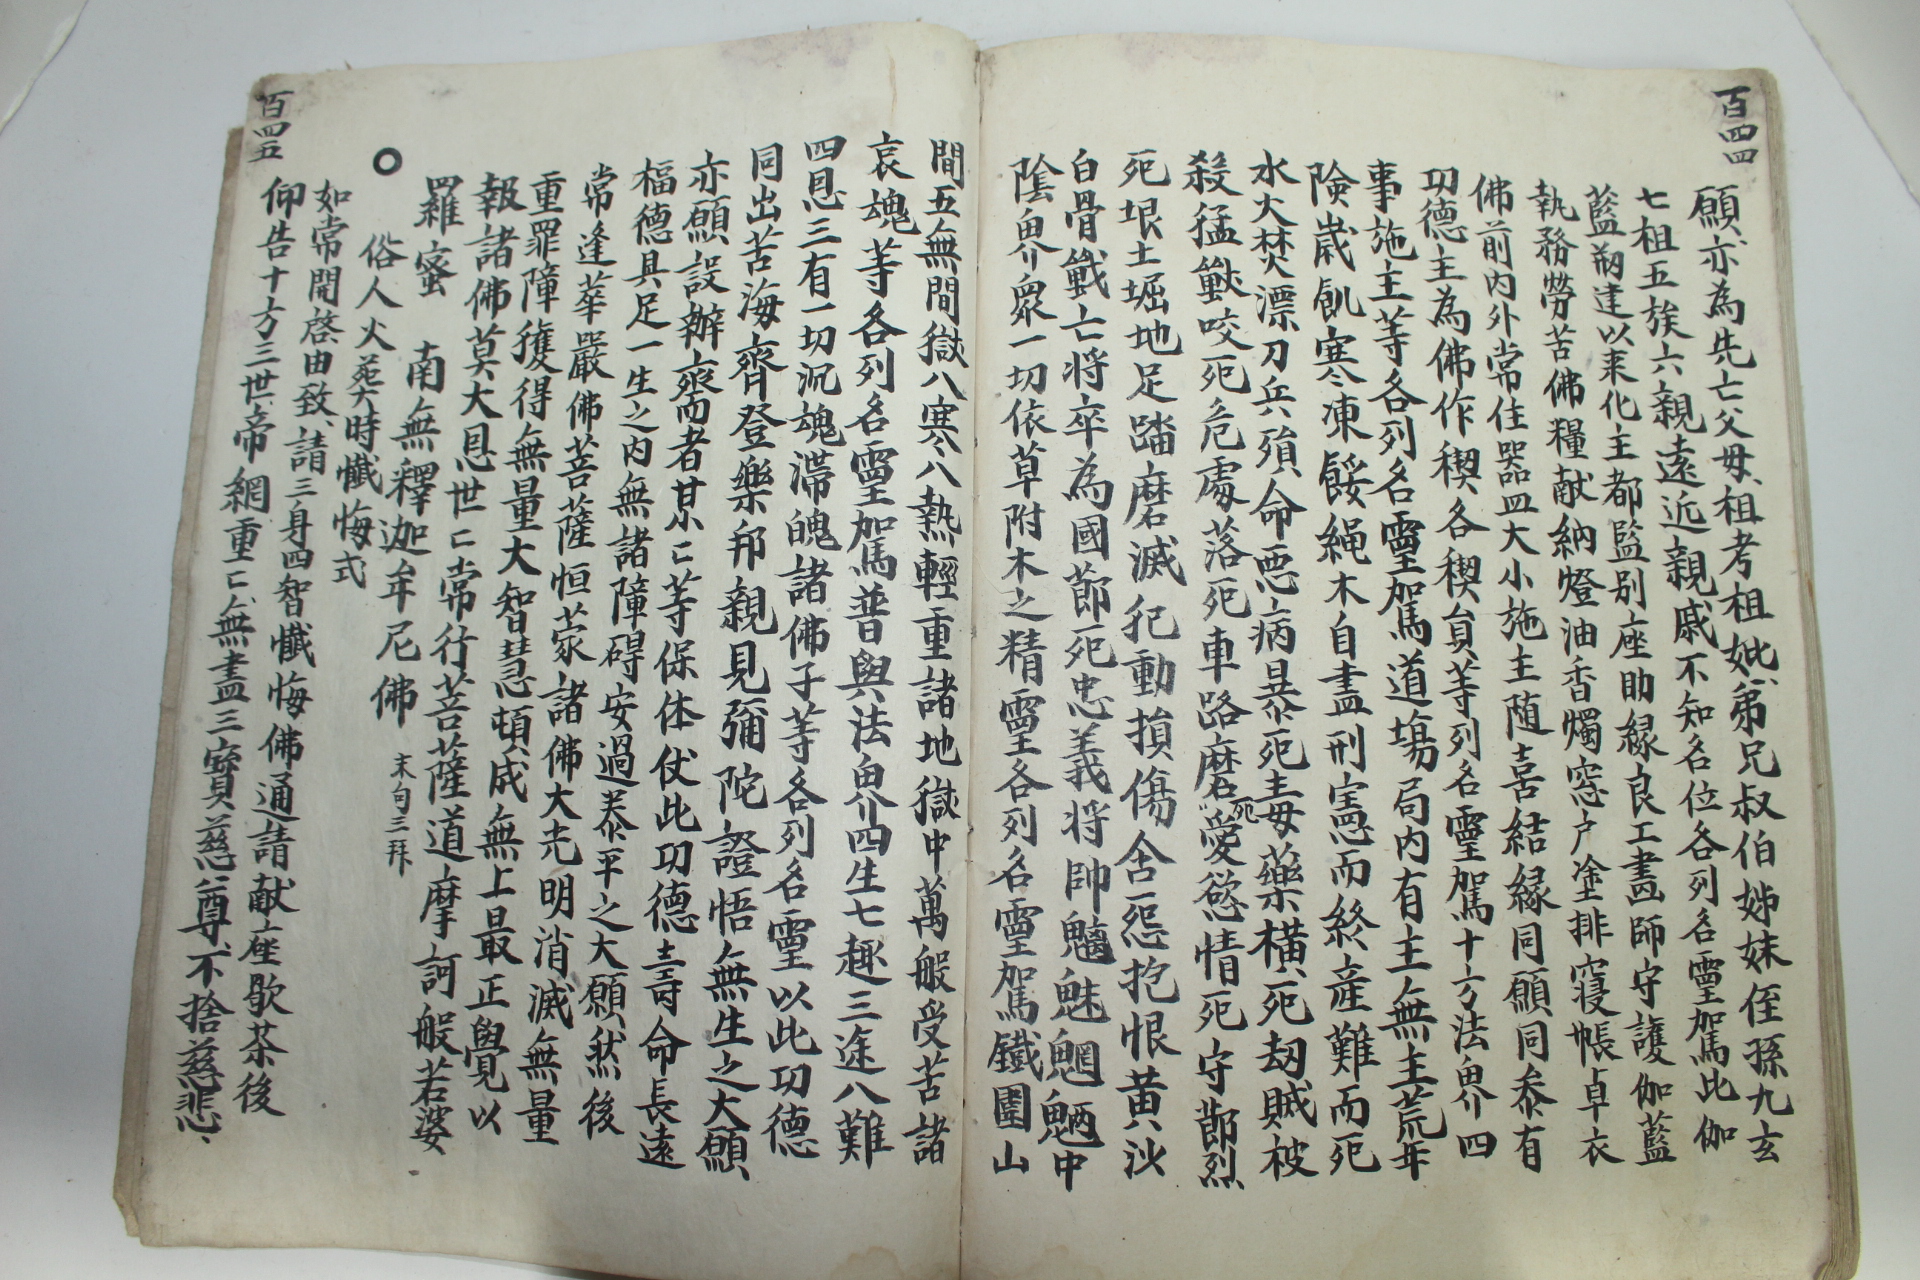 百四四
願亦為先亡父母祖考祖妣弟兄叔伯姊妹侄孫九玄
七祖五族六親遠近親戚不知名位各列名靈駕此伽
藍刱建以來化主都監別座助緣良工畵師守護伽藍
執務勞苦佛糧献納燈油香燭窓戶塗排寢帳卓衣
佛前內外常住器皿大小施主随喜結緣同願同叅有
功德主為佛作稧各稧員等列名靈駕十方法界四
事施主等各列名靈駕道塲局內有主無主荒年
険歲飢寒凍餒繩木自盡刑憲而終産難而死
水火焚漂刀兵殞命惡病暴死毒藥橫死劫賊被
殺猛獸咬死危處落死車路磨死愛慾情死守節烈
死垠土堀地足踏磨滅犯動損傷含怨抱恨黃沙
白骨戰亡將卒為國節死忠義將帥魑魅魍魎中
陰界衆一切依草附木之精靈各列名靈駕鐵圍山
間五無間獄八寒八熱輕重諸地獄中萬般受苦諸
哀魂等各列名靈駕普與法界四生七趣三途八難
四恩三有一切沉魂滯魄諸佛子等各列名靈以此功德
同出苦海齊登樂邦親見彌陀證悟無生之大願
亦願設辦齋者某〻等保体仗此功德壽命長遠
福德具足一生之內無諸障碍安過泰平之大願然後
常逢華嚴佛菩薩恒蒙諸佛大光明消滅無量
重罪障獲得無量大智慧頓成無上最正覺以
報諸佛莫大恩世〻常行菩薩道摩訶般若婆
羅蜜 南無釋迦牟尼佛 末句三拜
○ 俗人火葬時懺悔式
如常開啓由致請三身四智懺悔佛通請献座歇茶後
仰告十方三世帝網重〻無盡三寶慈尊不捨慈悲
百四五